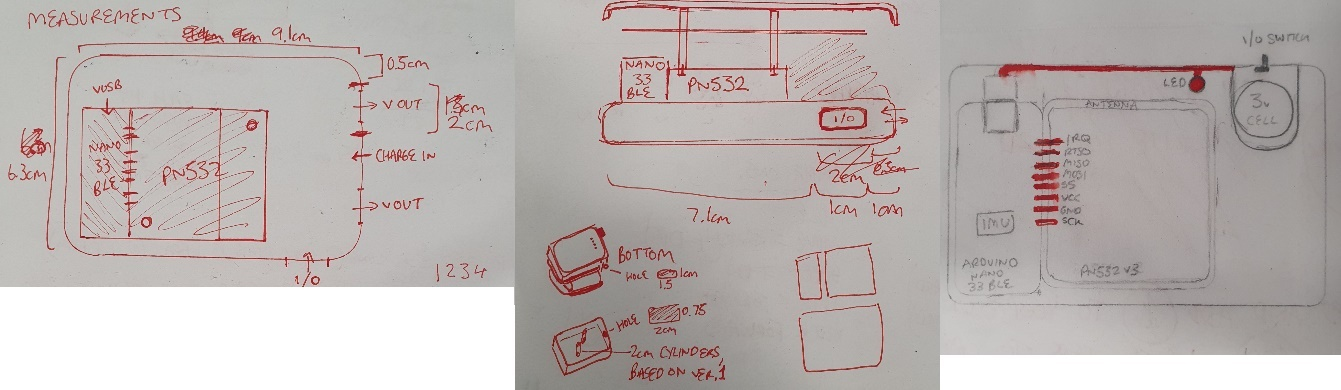 MEASUREMENTS
9cm 9.1cm
0.5cm
VUSB
V OUT
2cm
CHARGE IN
6.3cm
NANO
33
BLE
PN532
V OUT
I/O
1234
NANO
33
BLE
PN532
I/O
2cm
7.1cm
1cm
1cm
BOTTOM
HOLE
1cm
1.5
HOLE
0.75
2cm
2cm CYLINDERS,
BASED ON VER.1
I/O SWITCH
LED
ANTENNA
3v
CELL
IRQ
RTSO
MISO
MOSI
SS
VCC
GND
SCK
IMU
ARDUINO
NANO
33 BLE
PN532 V3